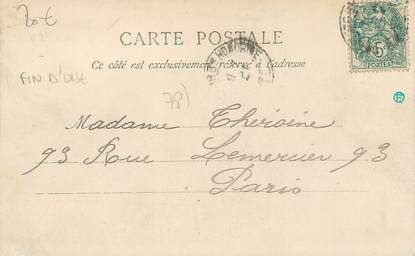 20€
CARTE POSTALE
Ce côté est exclusivement réservé à l'adresse
FIN D'OISE
78)
Madame Theroine
93 Rue Lemercier 93
Paris